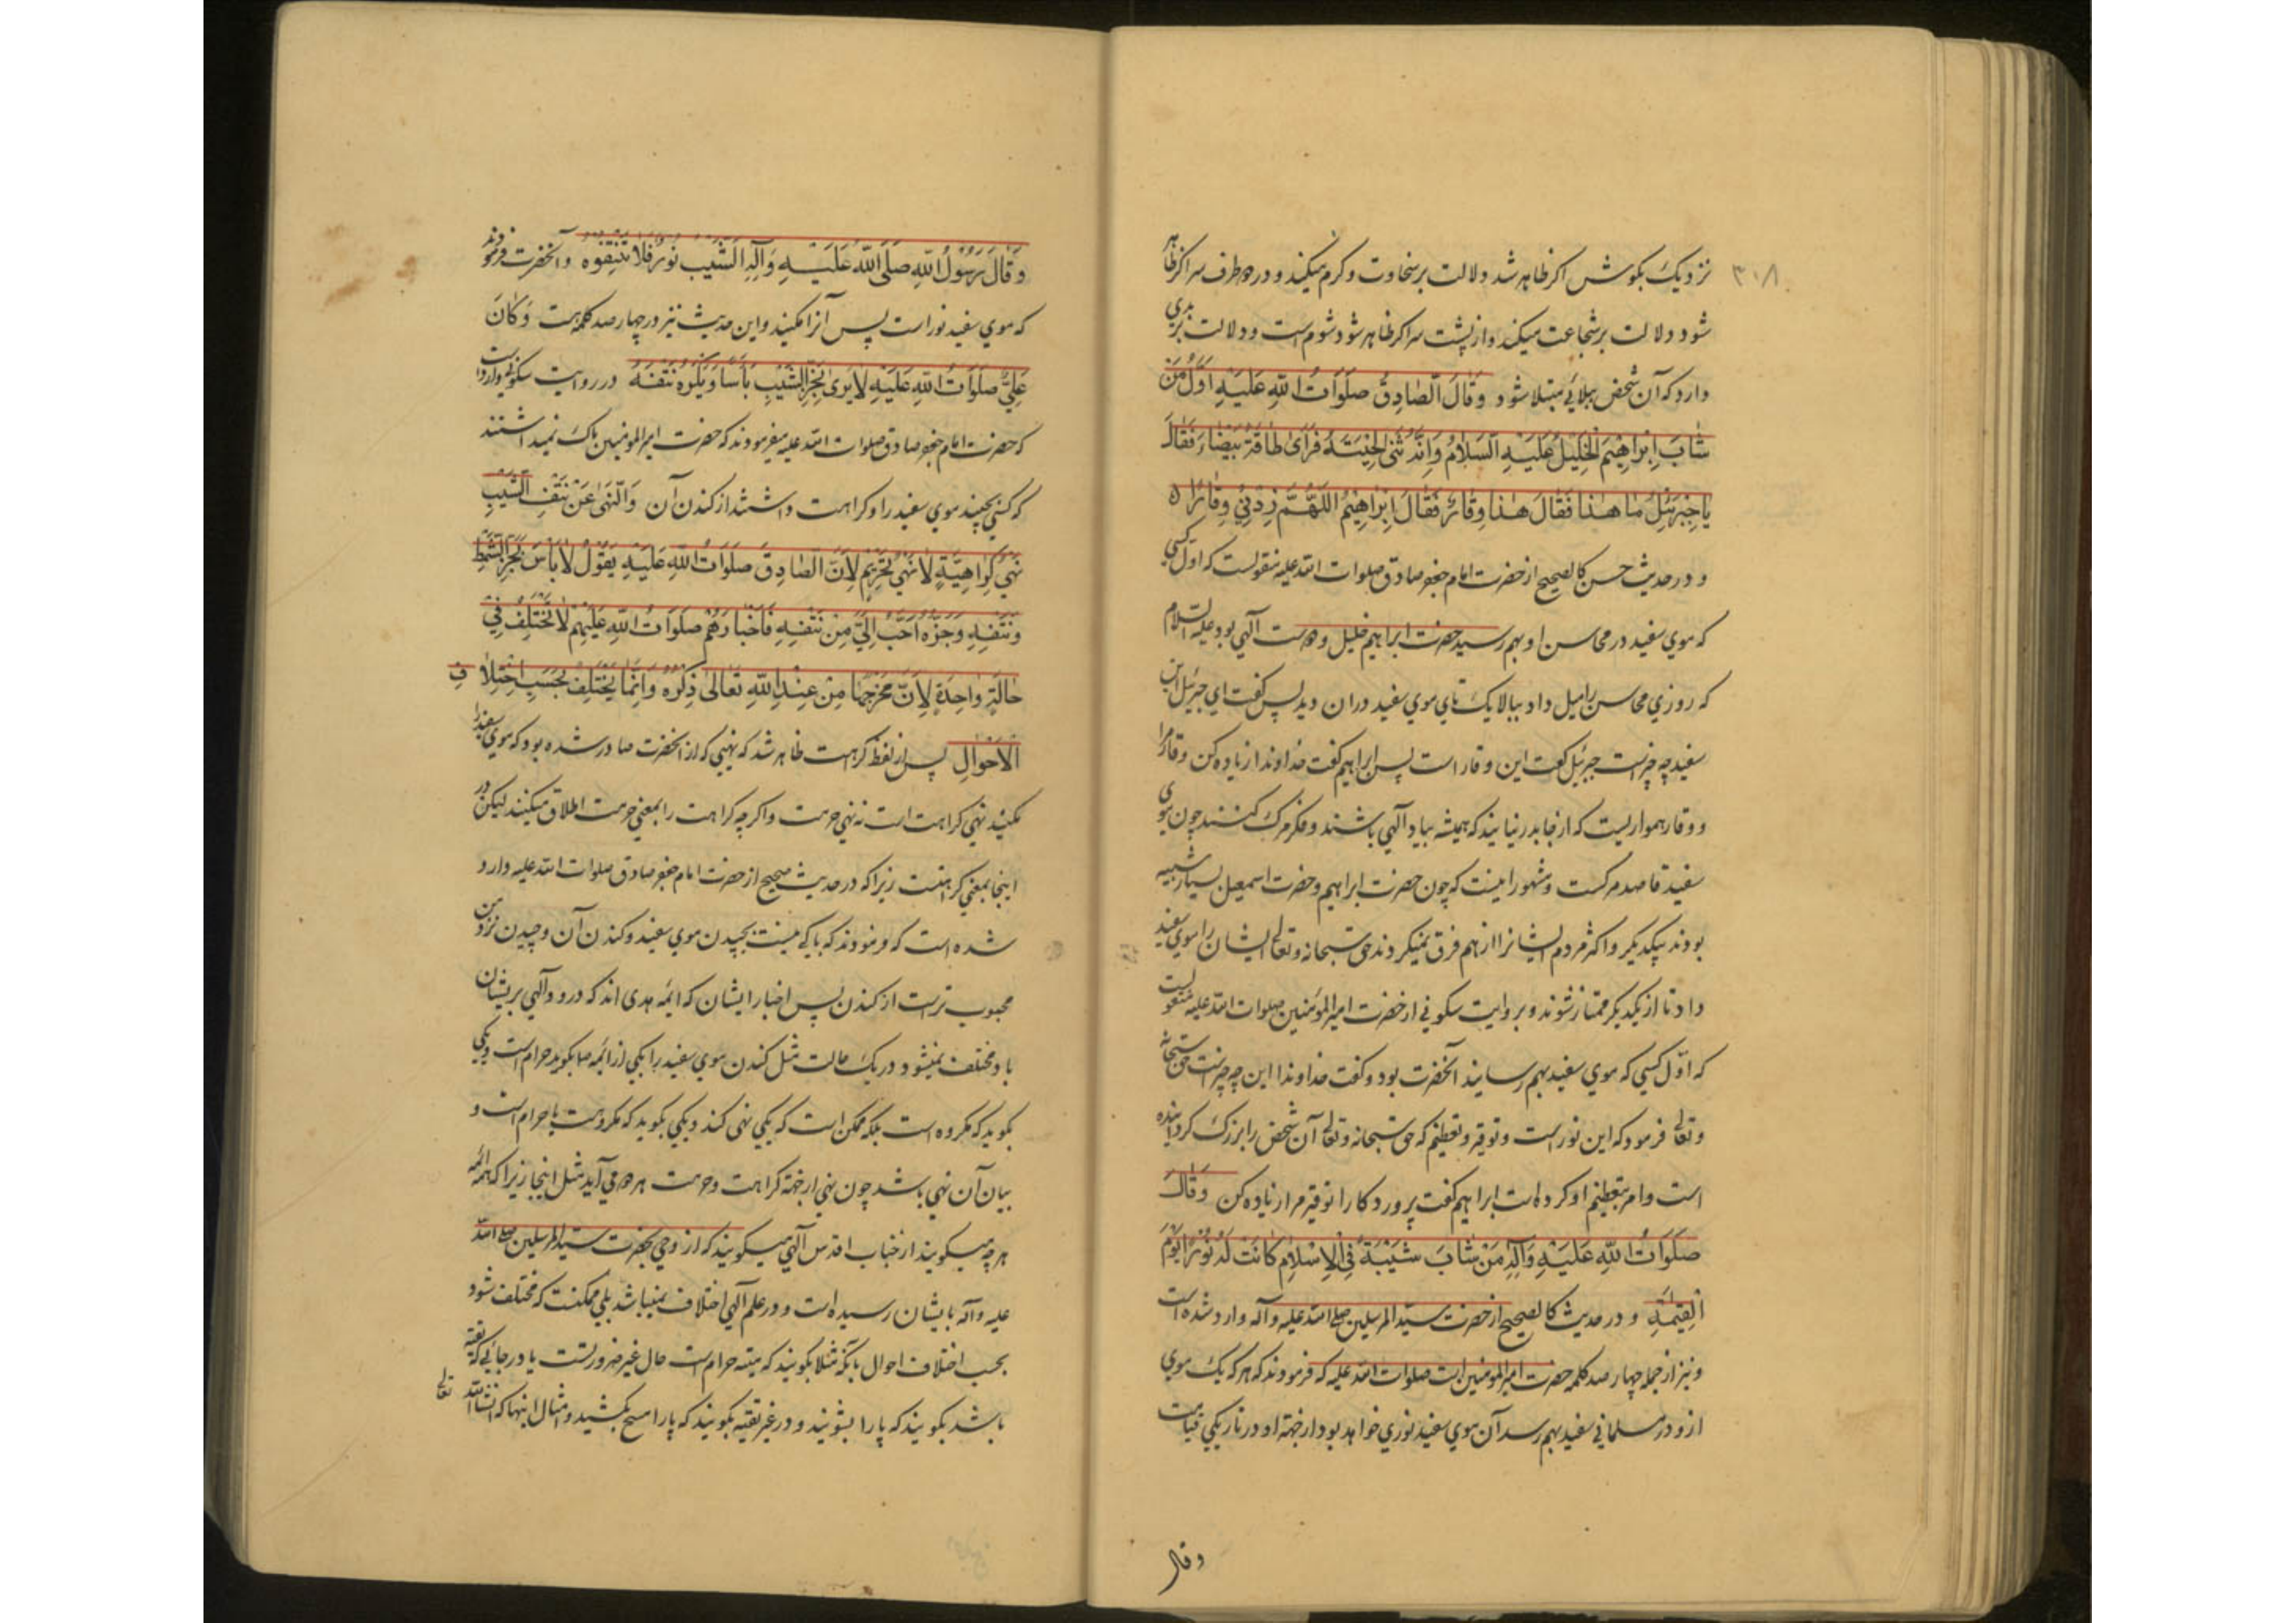 ۳۰۸
نزدیک بکوش اکر ظاهر شد دلالت بر سخاوت و کرم میکند و در دو طرف سر اکر ظاهر
شود دلالت بر شجاعت میکند و از پشت سر اکر ظاهر شود شومست و دلالت بر بدی
دارد که آن شخص ببلائی مبتلا شود وَقَالَ الصَّادِقُ صَلَوَاتُ اللّٰهِ عَلَيْهِ اَوَّلُ مَنْ
شَابَ اِبْرَاهِيمُ الْخَلِيلُ عَلَيْهِ السَّلَامُ وَاِنَّهُ ثَنٰى لِحْيَتَهُ فَرَاٰى طَاقَةً بَيْضَاءَ فَقَالَ
يَا جَبْرَئِيلُ مَا هٰذَا فَقَالَ هٰذَا وَقَارٌ فَقَالَ اِبْرَاهِيمُ اَللّٰهُمَّ زِدْنِي وَقَارًا
و در حدیث حسن کالصحیح از حضرت امام جعفر صادق صلوات الله علیه منقولست که اول کسی
که موی سفید در محاسن او بهم رسید حضرت ابراهیم خلیل بود علیه السلام
که روزی محاسن را میل داد ببالا یک تای موی سفید دران دید پس کفت ای جبرئیل این
سفید چه چیز است جبرئیل کفت این وقار است پس ابراهیم کفت خداوندا زیاده کن وقار مرا
و وقار همواریست که از جا بدر نیایند که همیشه بیاد آلهی باشند و فکر مرک کنند چون موی
سفید قاصد مرکست و مشهور اینست که چون حضرت ابراهیم و حضرت اسمعیل بسیار شبیه
بودند بیکدیکر و اکثر مردم ایشانرا از هم فرق نمیکردند حق سبحانه و تعالی ایشان را موی سفید
داد تا از یکدیکر ممتاز شوند و بروایت سکونی از حضرت امیر المؤمنین صلوات الله علیه منقولست
که اوّل کسی که موی سفید بهم رسانید آنحضرت بود و کفت خداوندا این چه چیز است حق سبحانه
و تعالی فرمود که این نور است و توقیر و تعظیم که حق سبحانه و تعالی آن شخص را بزرک کردانیده
است و امر بتعظیم او کرده است ابراهیم کفت پروردکارا توقیر مرا زیاده کن وَقَالَ
صَلَوَاتُ اللّٰهِ عَلَيْهِ وَآلِهِ مَنْ شَابَ شَيْبَةً فِي الْاِسْلَامِ كَانَتْ لَهُ نُورًا يَوْمَ
الْقِيٰمَةِ و در حدیث کالصحیح از حضرت سیّد المرسلین صلی الله علیه وآله وارد شده است
و نیز از جمله چهار صد کلمه حضرت امیر المومنین است صلوات الله علیه که فرمودند که هر که یک موی
ازو در مسلمانی سفید بهم رسد آن موی سفید نوری خواهد بود از جهة او در تاریکی قیامت
وقال
وَقَالَ رَسُولُ اللّٰهِ صَلَّى اللّٰهُ عَلَيْهِ وَآلِهِ اَلشَّيْبُ نُورٌ فَلَا تَنْتِفُوهُ و آنحضرت فرمودند
که موی سفید نور است پس آنرا مکنید و این حدیث نیز در چهار صد کلمه هست وَكَانَ
عَلِيٌّ صَلَوَاتُ اللّٰهِ عَلَيْهِ لَا يَرٰى بِجَزِّ الشَّيْبِ بَأْسًا وَيَكْرَهُ نَتْفَهُ در روایت سکونی وارد است
که حضرت امام جعفر صادق صلوات الله علیه میفرمودند که حضرت امیر المومنین باک نمیداشتند
که کسی بچیند موی سفید را و کراهت داشتند از کندن آن وَالنَّهْيُ عَنْ نَتْفِ الشَّيْبِ
نَهْيُ كَرَاهِيَّةٍ لَا نَهْيُ تَحْرِيْمٍ لِاَنَّ الصَّادِقَ صَلَوَاتُ اللّٰهِ عَلَيْهِ يَقُولُ لَا بَأْسَ بِجَزِّ الشَّمَطِ
وَنَتْفِهِ وَجَزُّهُ اَحَبُّ اِلَيَّ مِنْ نَتْفِهِ فَاَخْبَارُهُمْ صَلَوَاتُ اللّٰهِ عَلَيْهِمْ لَا تَخْتَلِفُ فِي
حَالَةٍ وَاحِدَةٍ لِاَنَّ مَخْرَجَهَا مِنْ عِنْدِ اللّٰهِ تَعَالٰى ذِكْرُهُ وَاِنَّمَا يَخْتَلِفُ بِحَسَبِ اخْتِلَافِ
الْاَحْوَالِ پس از لفظ کراهت ظاهر شد که نهیی که از آنحضرت صادر شده بود که موی سفید را
مکنید نهی کراهت است نه نهی حرمت و اکرچه کراهت را بمعنی حرمت اطلاق میکنند لیکن در
اینجا بمعنی کراهتست زیرا که در حدیث صحیح از حضرت امام جعفر صادق صلوات الله علیه وارد
شده است که فرمودند که باکی نیست بچیدن موی سفید و کندن آن و چیدن نزد من
محبوب تر است از کندن پس اخبار ایشان که ائمه هدی اند که درود آلهی بریشان
باد مختلف نمیشود در یک حالت مثل کندن موی سفید را یکی از ائمه ما بکوید حرام است و یکی
بکوید که مکروه است بلکه ممکن است که یکی نهی کند و یکی بکوید که مکروهست یا حرام است و
بیان آن نهی باشد چون نهی از جهة کراهت و حرمت هر دو می آید مثل اینجا زیرا که ائمه
هر چه میکویند از جناب اقدس آلهی میکویند که از وحی بحضرت سید المرسلین صلی الله
علیه وآله بایشان رسیده است و در علم آلهی اختلاف نمیباشد بلی ممکنست که مختلف شود
بحسب اختلاف احوال بآنکه مثلا بکویند که میته حرام است حال غیر ضرورت یا در جائی که تقیه
باشد بکویند که پا را بشویند و در غیر تقیه بکویند که پا را مسح بکشید و امثال اینها که انشاء الله تعالی